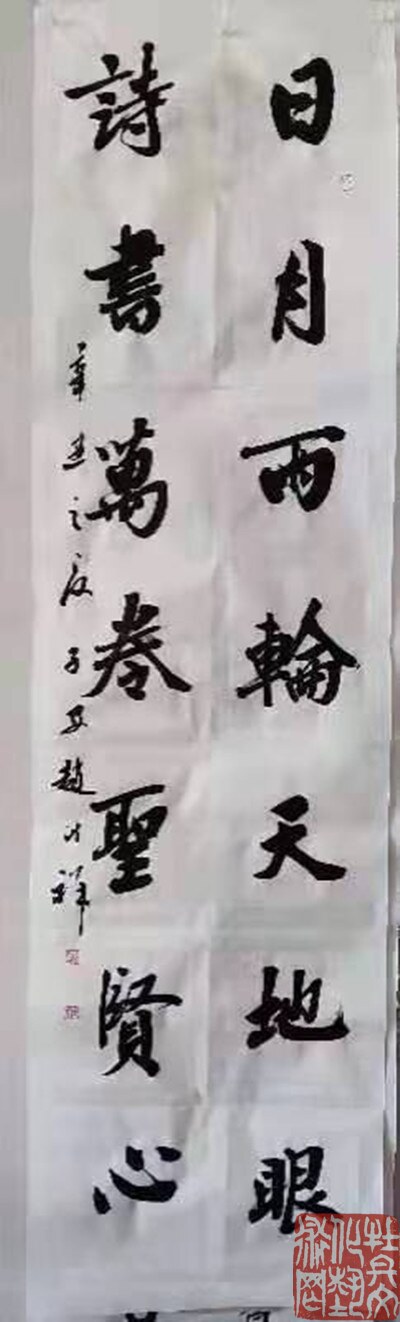 日月兩輪天地眼
詩書萬卷聖賢心
辛丑之夏趙祥